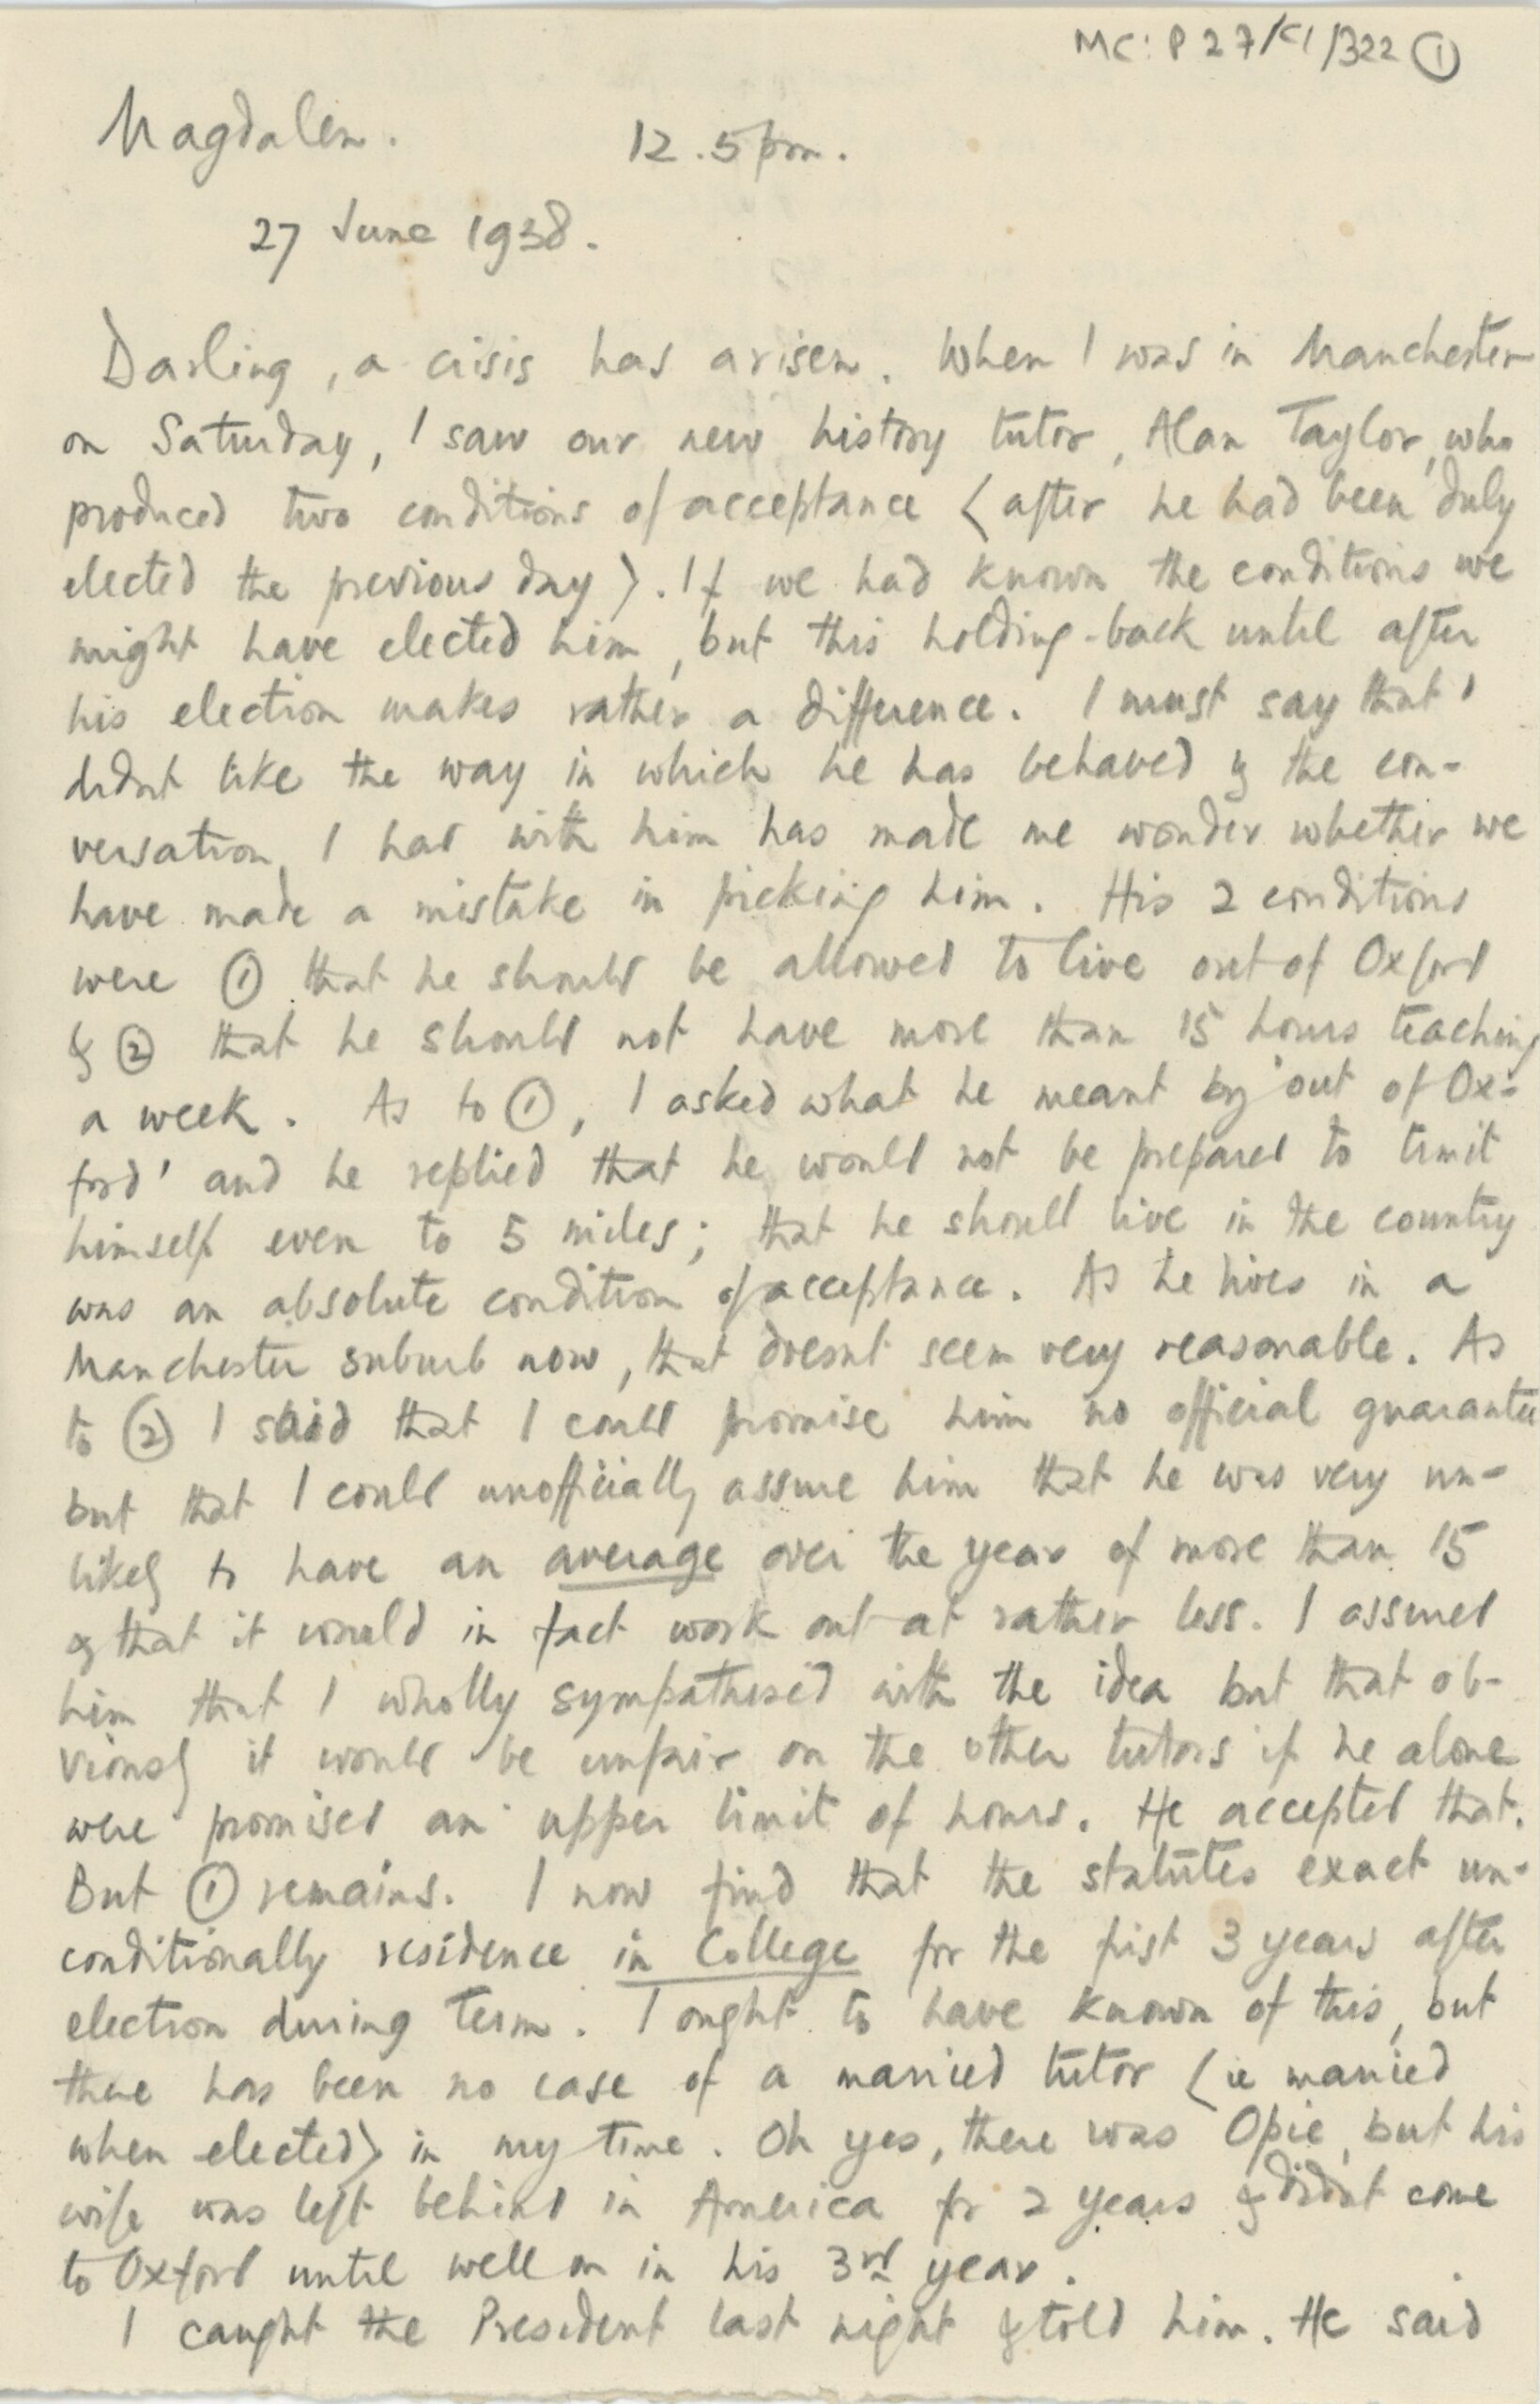 MC: P 27/C1/322 ①
Magdalen. 12.5 pm.
27 June 1938.
Darling, a crisis has arisen. When I was in Manchester
on Saturday, I saw our new history tutor, Alan Taylor, who
produced two conditions of acceptance (after he had been duly
elected the previous day). If we had known the conditions we
might have elected him, but this holding-back until after
his election makes rather a difference. I must say that I
didnt like the way in which he has behaved & the con-
versation I had with him has made me wonder whether we
have made a mistake in picking him. His 2 conditions
were ① that he should be allowed to live out of Oxford
& ② that he should not have more than 15 hours teaching
a week. As to ①, I asked what he meant by 'out of Ox-
ford' and he replied that he would not be prepared to limit
himself even to 5 miles; that he should live in the country
was an absolute condition of acceptance. As he lives in a
Manchester suburb now, that doesnt seem very reasonable. As
to ② I said that I could promise him no official guarantee
but that I could unofficially assure him that he was very un-
likely to have an average over the year of more than 15
& that it would in fact work out at rather less. I assured
him that I wholly sympathised with the idea but that ob-
viously it would be unfair on the other tutors if he alone
were promised an upper limit of hours. He accepted that.
But ① remains. I now find that the statutes exact un-
conditionally residence in College for the first 3 years after
election during term. I ought to have known of this, but
there has been no case of a married tutor (ie married
when elected) in my time. Oh yes, there was Opie, but his
wife was left behind in America for 2 years & didnt come
to Oxford until well on in his 3rd year.
I caught the President last night & told him. He said